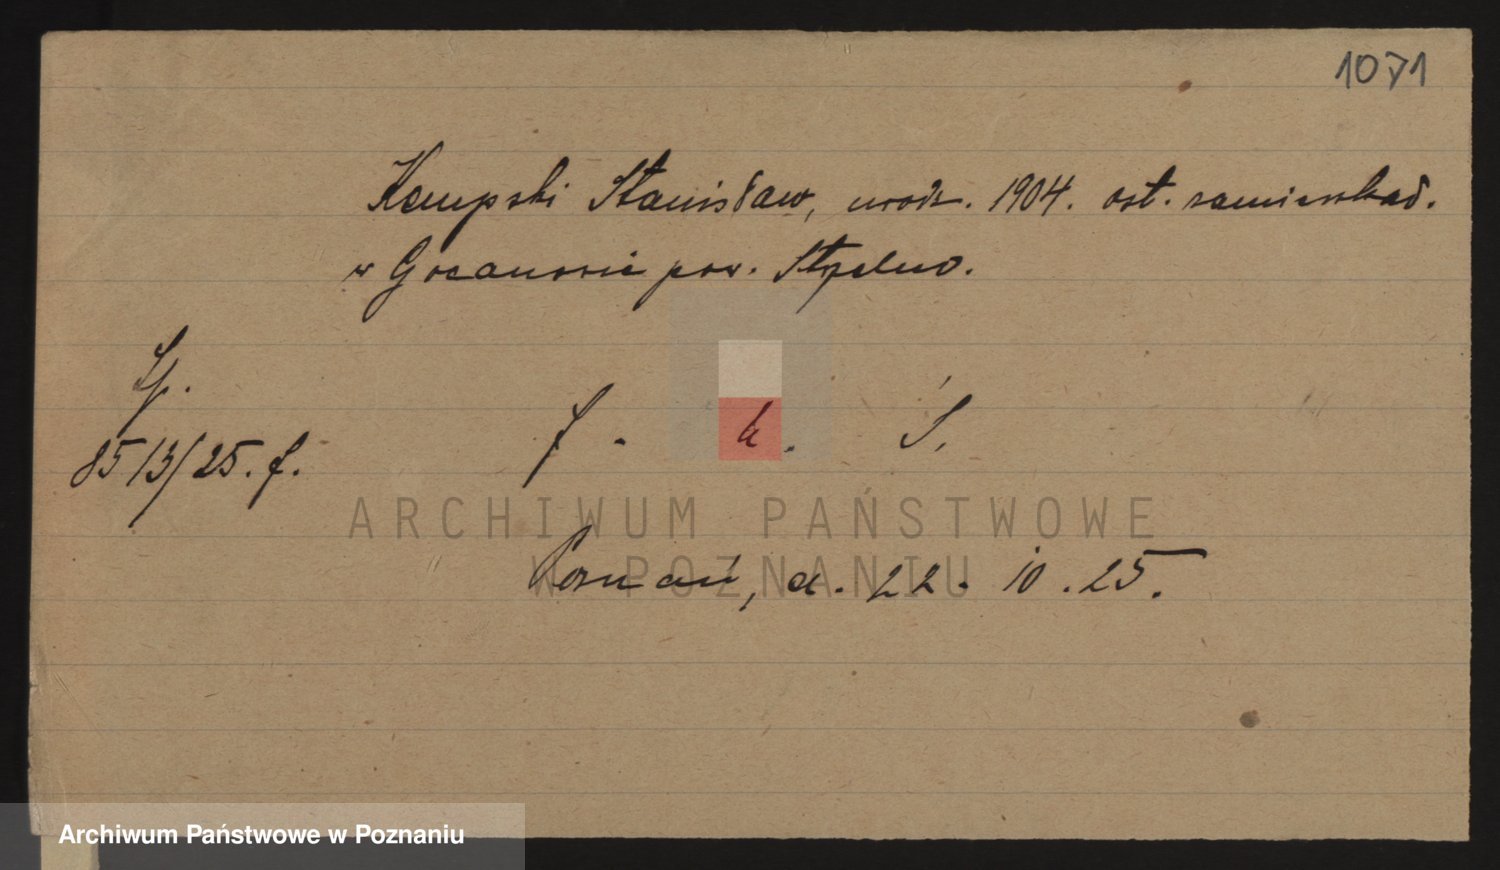 1071
Kempski Stanisław, urodz. 1904. ost. zamieszkał.
w Gocanowie pow. Strzelno.
Lp.
8513/25. f.
f. k. S.
ARCHIWUM PAŃSTWOWE
W POZNANIU
Poznań, d. 22. 10. 25.
Archiwum Państwowe w Poznaniu